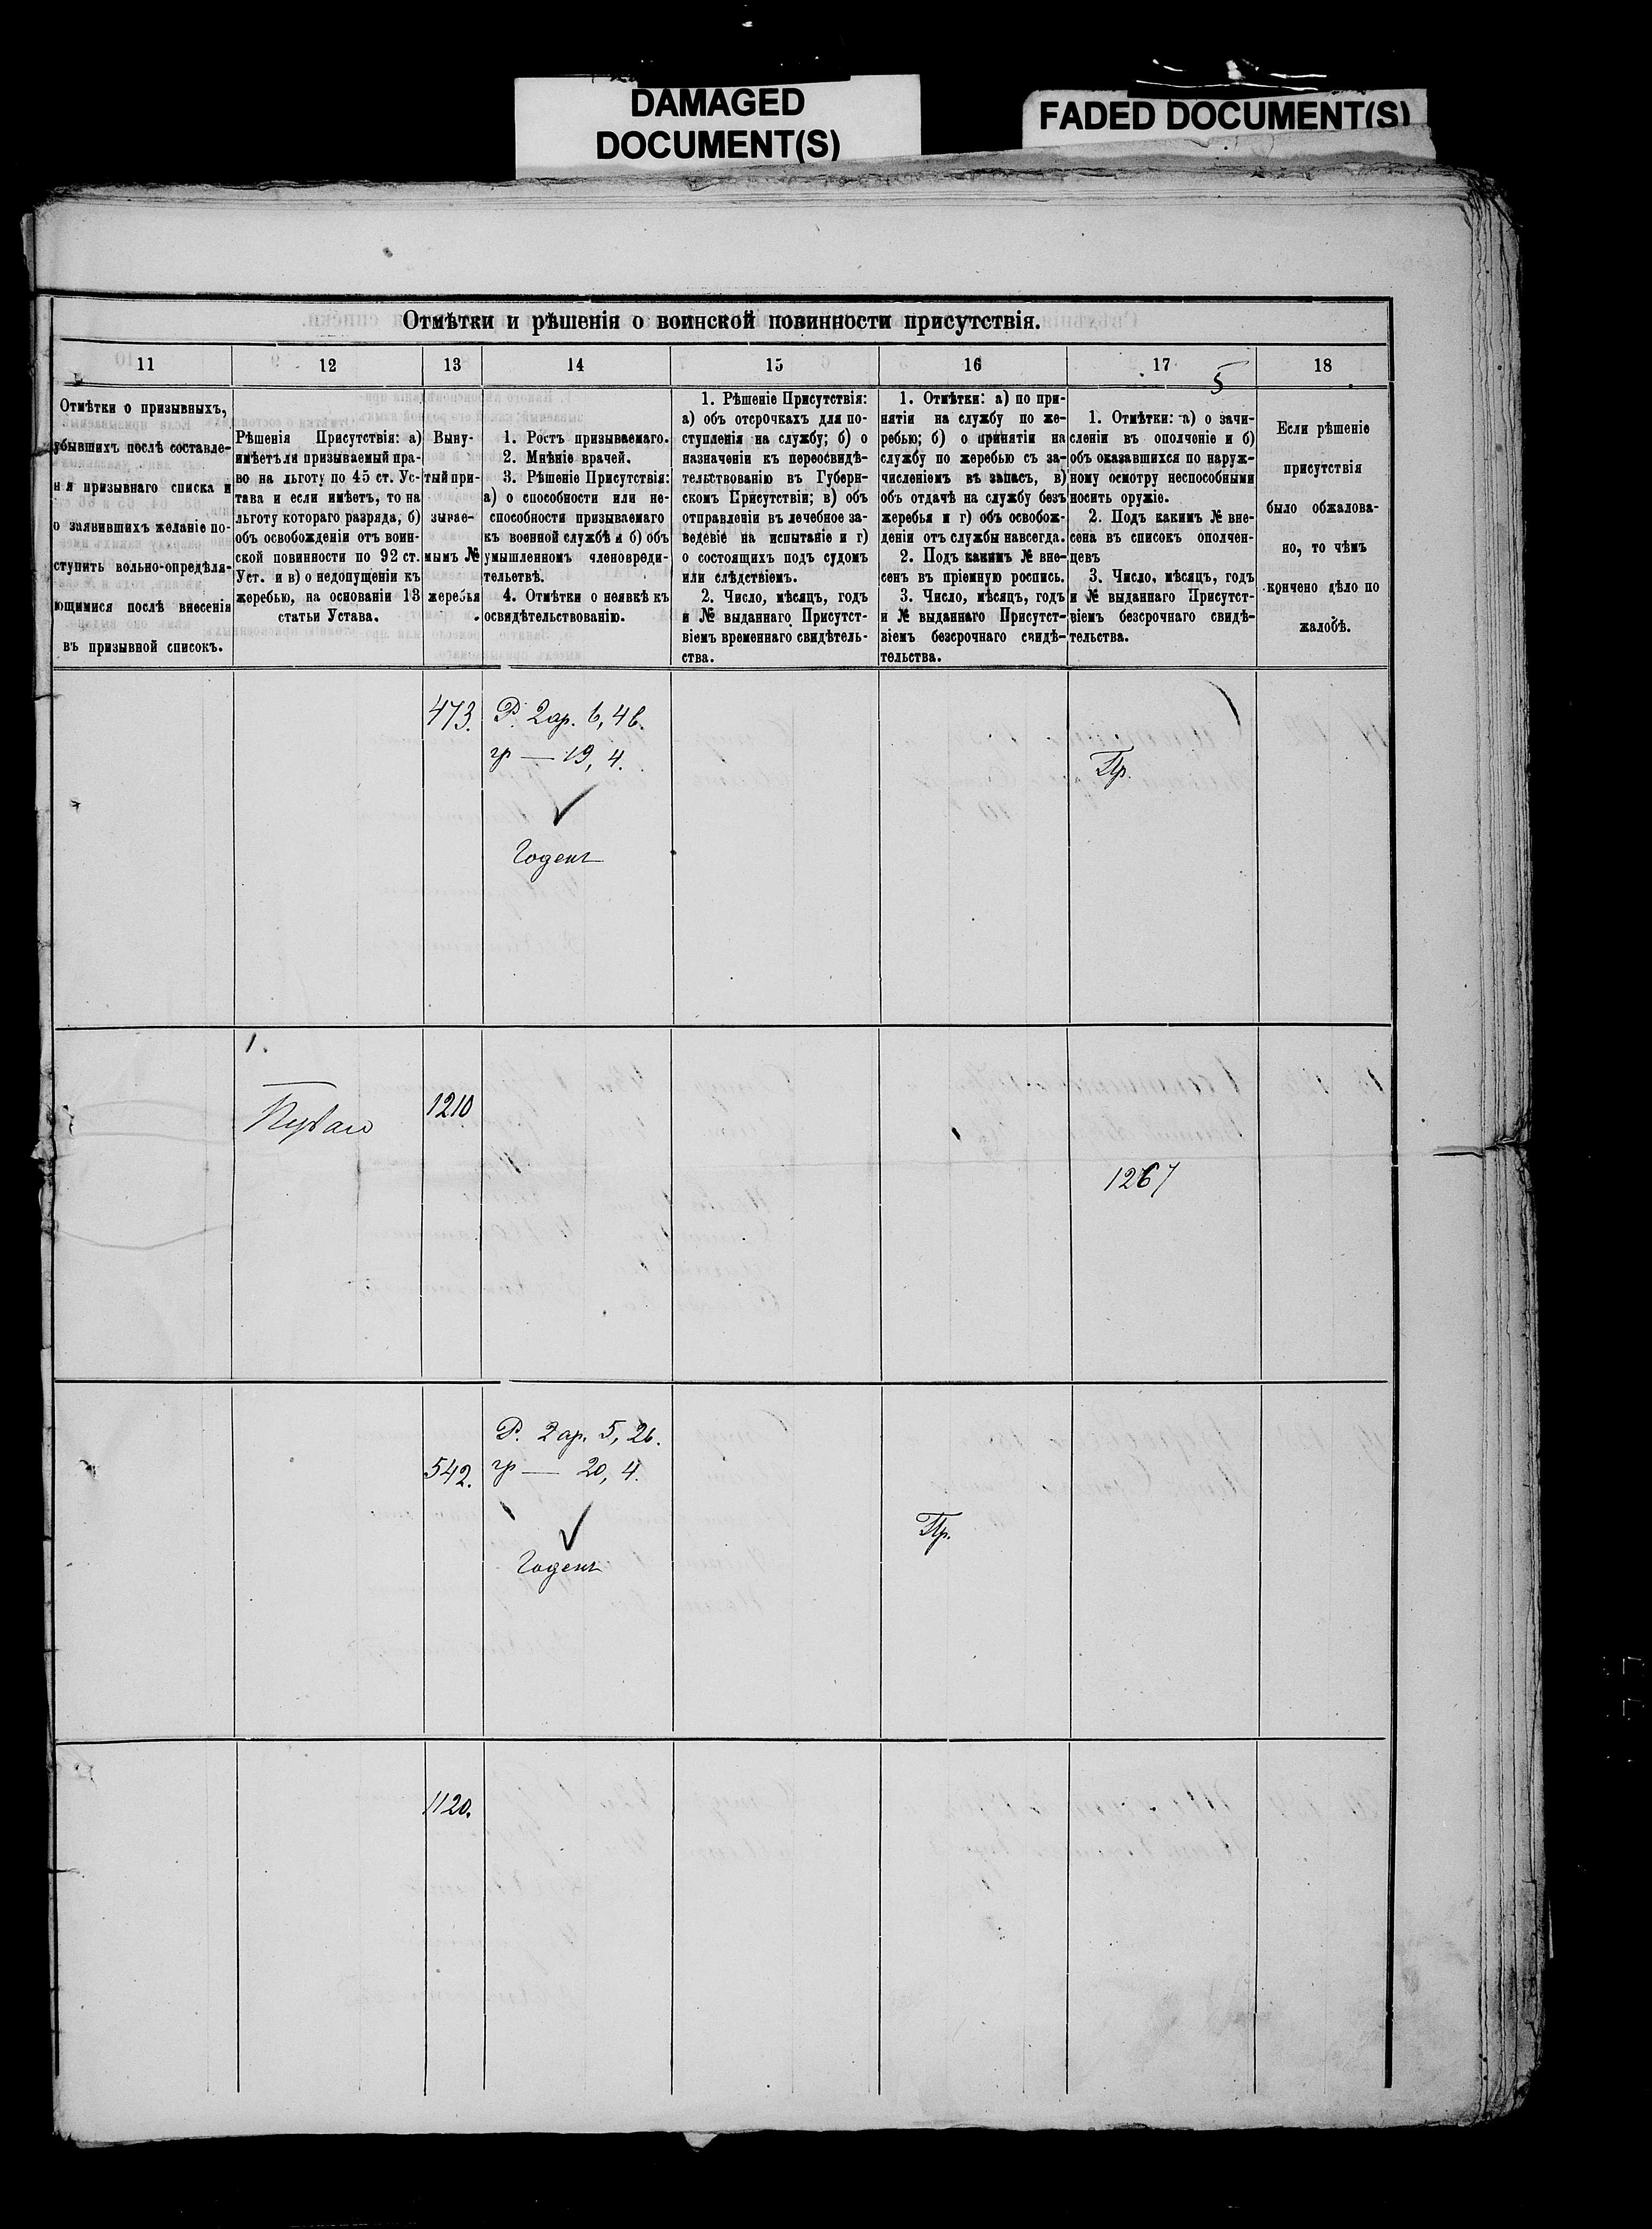 DAMAGED
DOCUMENT(S)
FADED DOCUMENT(S)
Отмѣтки и рѣшенія о воинской повинности присутствія.
11
12
13
14
15
16
17
18
5
Отмѣтки о призывныхъ,
убывшихъ послѣ составле-
нія призывнаго списка и
о заявившихъ желаніе по-
ступить вольно-опредѣля-
ющимися послѣ внесенія
въ призывной списокъ.
Рѣшенія Присутствія: а)
имѣетъ ли призываемый пра-
во на льготу по 45 ст. Ус-
тава и если имѣетъ, то на
льготу котораго разряда, б)
объ освобожденіи отъ воин-
ской повинности по 92 ст.
Уст. и в) о недопущеніи къ
жеребью, на основаніи 13
статьи Устава.
Выну-
тый при-
зывае-
мымъ №
жеребья
1. Ростъ призываемаго.
2. Мнѣніе врачей.
3. Рѣшеніе Присутствія:
а) о способности или не-
способности призываемаго
къ военной службѣ и б) объ
умышленномъ членовреди-
тельствѣ.
4. Отмѣтки о неявкѣ къ
освидѣтельствованію.
1. Рѣшеніе Присутствія:
а) объ отсрочкахъ для по-
ступленія на службу; б) о
назначеніи къ переосвидѣ-
тельствованію въ Губерн-
скомъ Присутствіи; в) объ
отправленіи въ лечебное за-
веденіе на испытаніе и г)
о состоящихъ подъ судомъ
или слѣдствіемъ.
2. Число, мѣсяцъ, годъ
и № выданнаго Присутст-
віемъ временнаго свидѣтель-
ства.
1. Отмѣтки: а) по при-
нятіи на службу по же-
ребью; б) о принятіи на
службу по жеребью съ за-
численіемъ въ запасъ, в)
объ отдачѣ на службу безъ
жеребья и г) объ освобож-
деніи отъ службы навсегда.
2. Подъ какимъ № вне-
сенъ въ пріемную роспись.
3. Число, мѣсяцъ, годъ
и № выданнаго Присутст-
віемъ безсрочнаго свидѣ-
тельства.
1. Отмѣтки: а) о зачи-
сленіи въ ополченіе и б)
объ оказавшихся по наруж-
ному осмотру неспособными
носить оружіе.
2. Подъ какимъ № вне-
сена въ списокъ ополчен-
цевъ
3. Число, мѣсяцъ, годъ
и № выданнаго Присутст-
віемъ безсрочнаго свидѣ-
тельства.
Если рѣшеніе
присутствія
было обжалова-
но, то чѣмъ
кончено дѣло по
жалобѣ.
473.
Р. 2 ар. 6, 4 в.
гр — 19, 4.
Годенъ
Пр.
1.
1210
1267
542.
Р. 2 ар. 5, 2 в.
гр — 20, 4.
Годенъ
Пр.
1120.